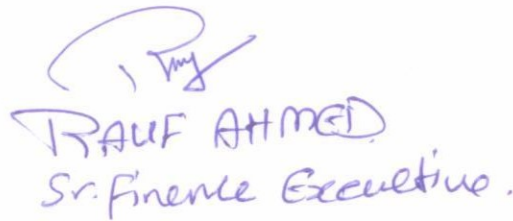 RAUF AHMED
Sr. Finence Executive.